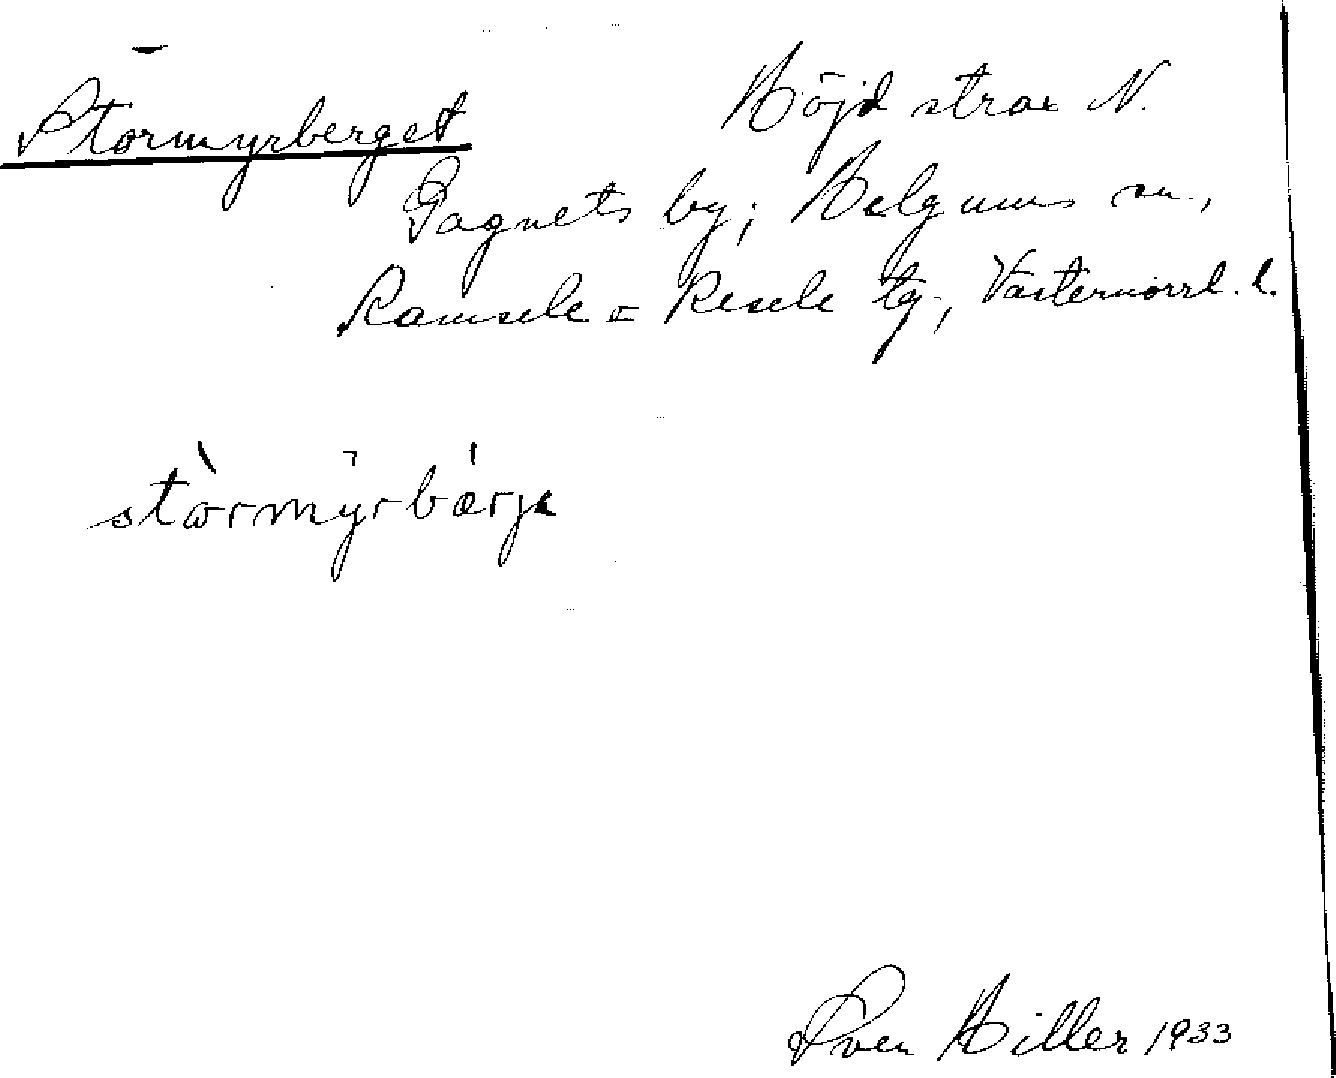 Stormyrberget
Höjd strax N.
Gagnets by; Helgums sn,
Ramsele o Resele tg., Västernorrl. l.
stòrmȳrbǽrjɛ
Sven Hiller 1933